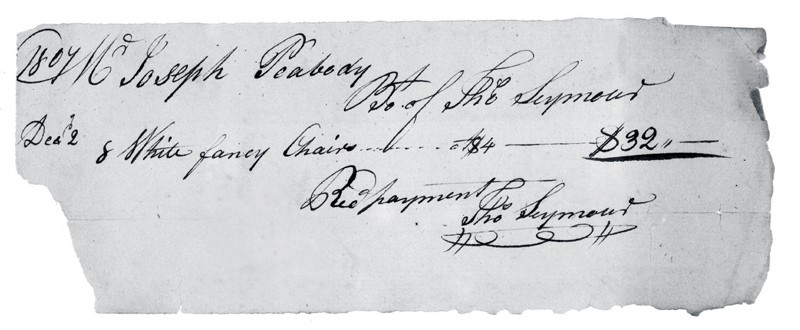 1807 Mr Joseph Peabody
Bot of Thos Seymour
Decr 2 8 White fancy Chairs ........ a $4 — $32,, —
Recd payment
Thos Seymour